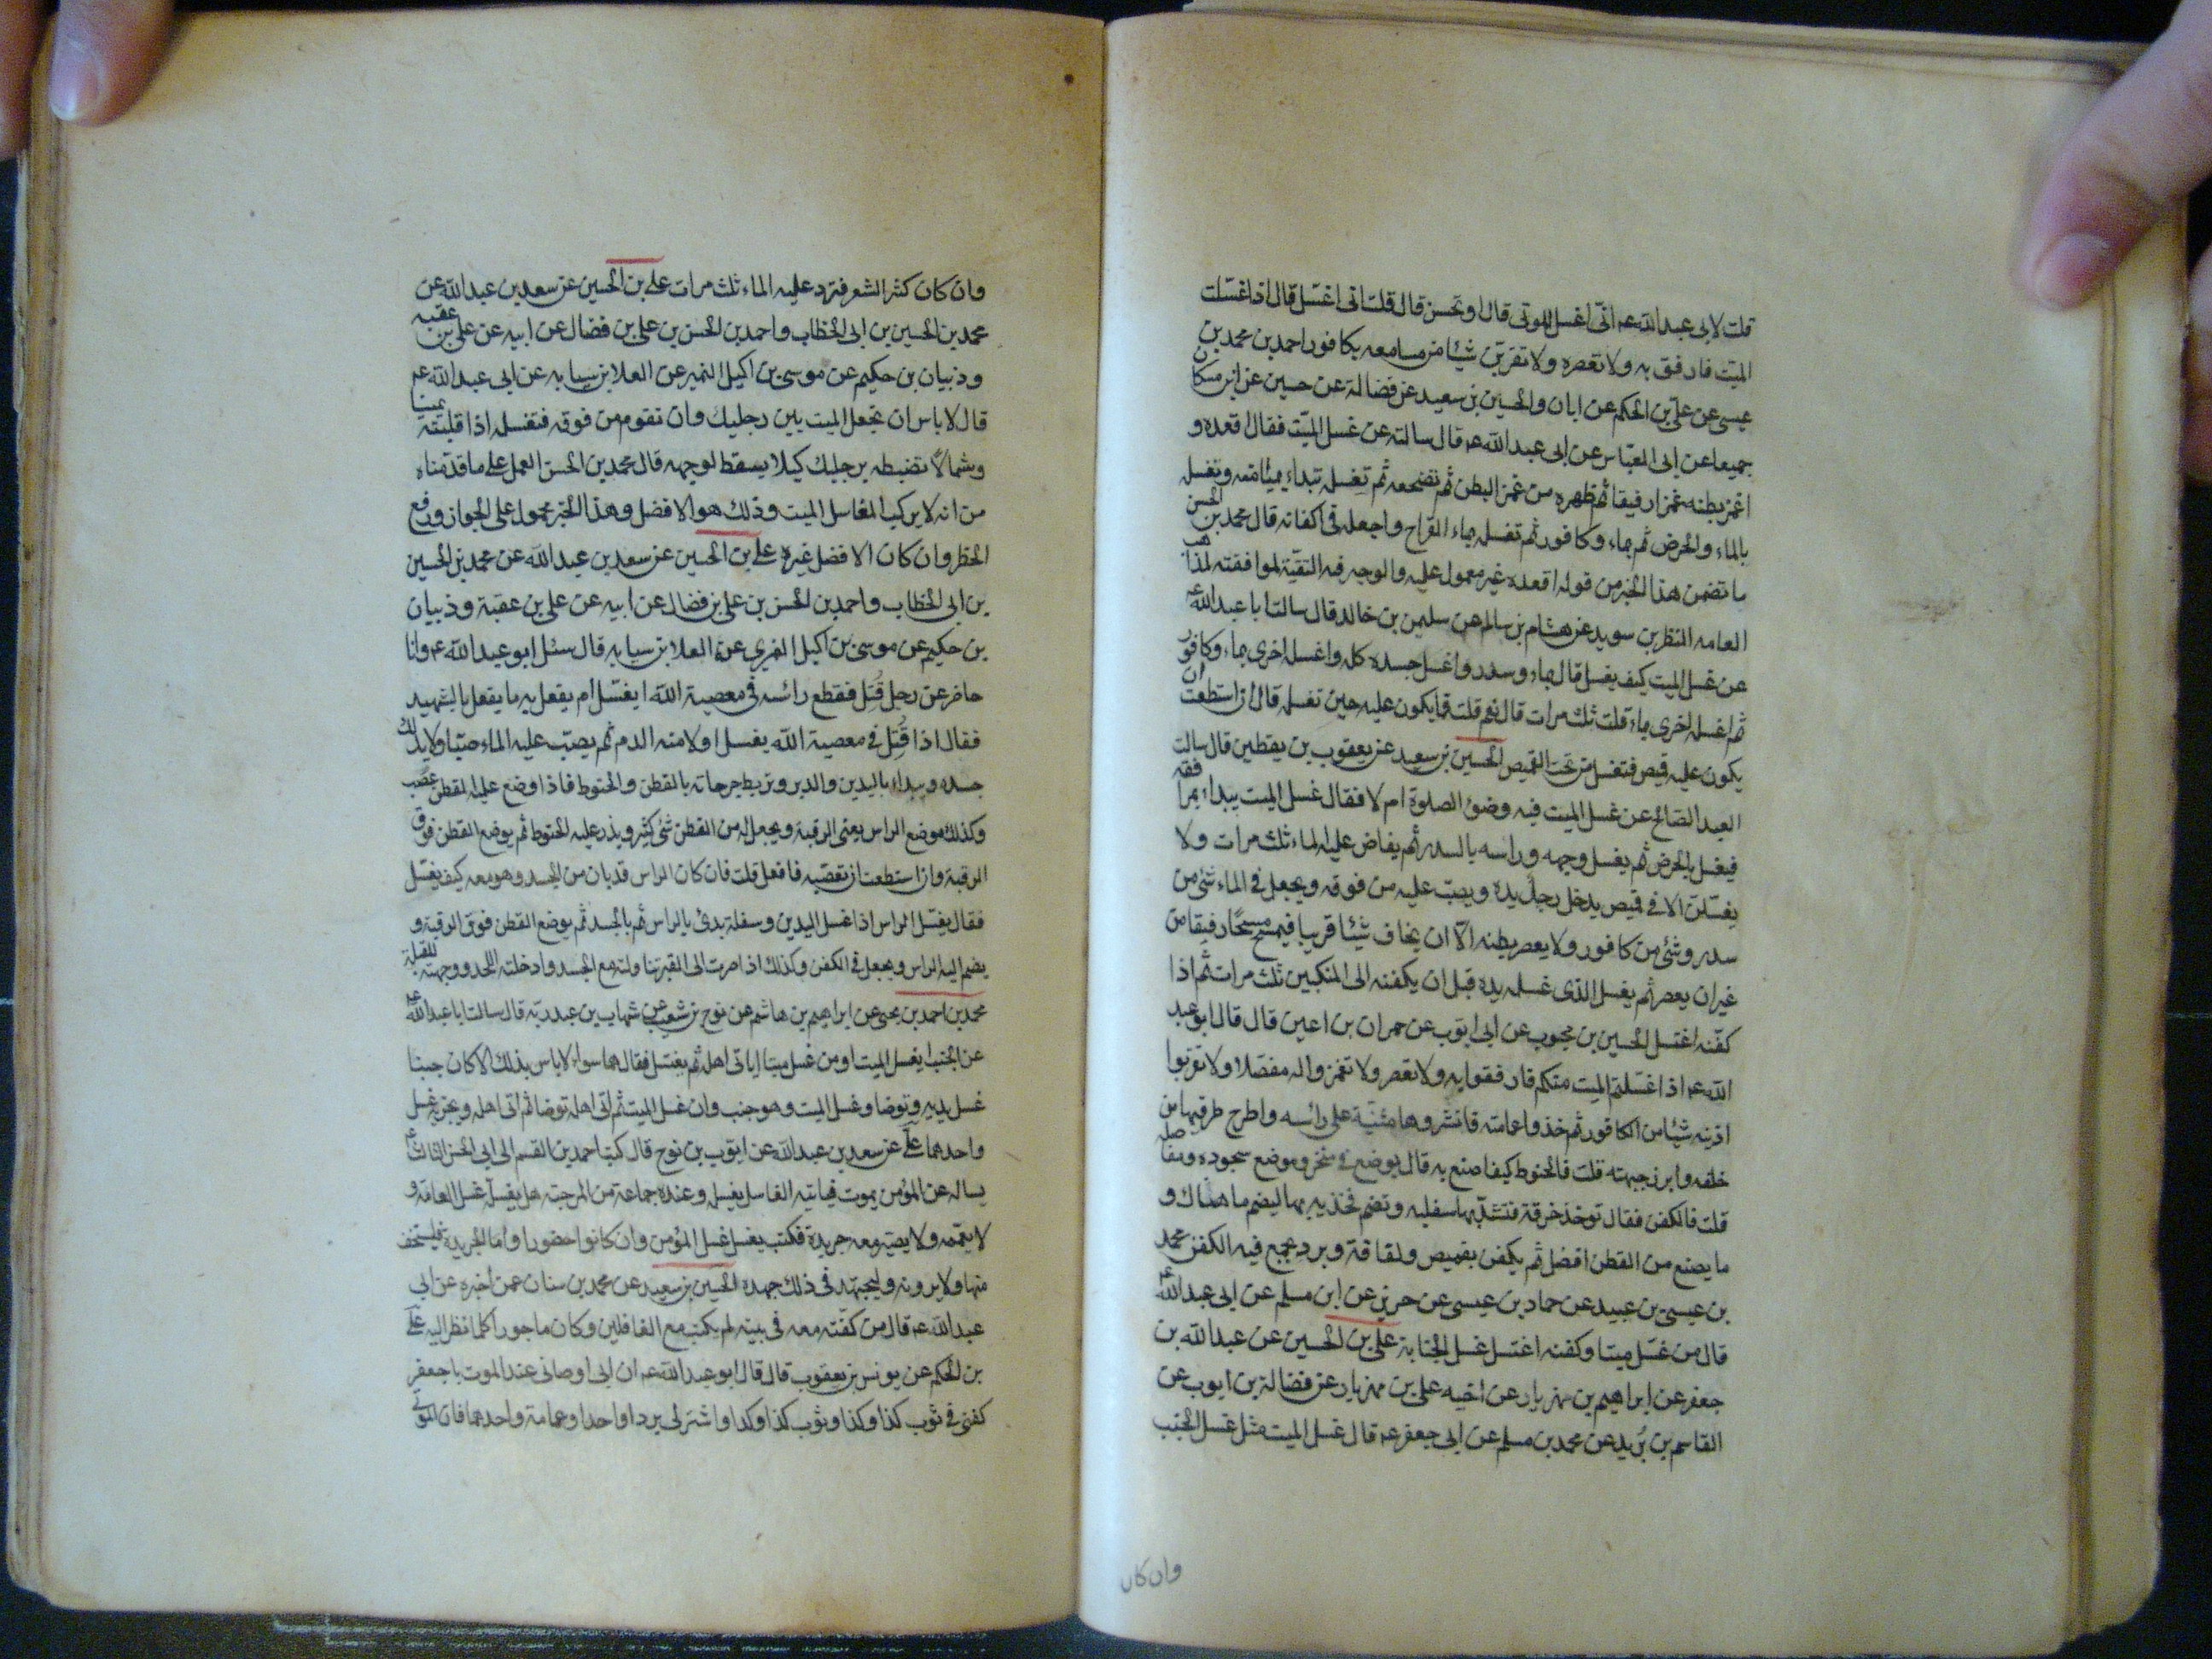 قلت لابى عبد الله عم انى اغسل الموتى قال او تحسن قال قلت انى اغسل قال اذا غسلت
الميت فارفق به ولا تعصره ولا تقربن شيئا من مسامعه بكافور احمد بن محمد بن
عيسى عن على بن الحكم عن ابان والحسين بن سعيد عن فضالة عن حسين عن ابن مسكان
جميعا عن ابى العباس عن ابى عبد الله عم قال سالته عن غسل الميت فقال اقعده و
اغمز بطنه غمزا رفيقا ثم طهره من غمز البطن ثم تضجعه ثم تغسله تبداء بميامنه وتغسله
بالماء والحرض ثم بماء وكافور ثم تغسله بماء القراح واجعله فى اكفانه قال محمد بن الحسن
ما تضمن هذا الخبر من قوله اقعده غير معمول عليه والوجه فيه التقية لموافقته لمذاهب
العامه النظر بن سويد عن هشام بن سالم عن سليمن بن خالد قال سالت ابا عبد الله عم
عن غسل الميت كيف يغسل قال بماء وسدر واغسل جسده كله واغسله اخرى بماء وكافور
ثم اغسله اخرى بماء قلت ثلث مرات قال نعم قلت فما يكون عليه حين تغسله قال ان استطعت ان
يكون عليه قميص فتغسل من تحت القميص الحسين بن سعيد عن يعقوب بن يقطين قال سالت
العبد الصالح عن غسل الميت فيه وضؤ الصلوة ام لا فقال غسل الميت يبداء بمرافقه
فيغسل بالحرض ثم يغسل وجهه وراسه بالسدر ثم يفاض عليه الماء ثلث مرات ولا
يغسلن الا فى قميص يدخل رجل يده ويصب عليه من فوقه ويجعل فى الماء شئ من
سدر وشئ من كافور ولا يعصر بطنه الا ان يخاف شيئا قريبا فيمسح مسحا رفيقا من
غير ان يعصر ثم يغسل الذى غسله يده قبل ان يكفنه الى المنكبين ثلث مرات ثم اذا
كفنه اغتسل الحسين بن محبوب عن ابى ايوب عن حمران بن اعين قال قال ابو عبد
الله عم اذا غسلتم الميت منكم فارفقوا به ولا تعصر ولا تغمز واله مفصلا ولا تقربوا
اذنيه شيئا من الكافور ثم خذوا عمامته فانشروها مثنية على رائسه واطرح طرفيها من
خلفه وابرز جبهته قلت فالحنوط كيف اصنع به قال يوضع فى منخره وموضع سجوده ومفاصله
قلت فالكفن فقال توخذ خرقة فتشد بها سفليه وتضم فخذيه بها ليضم ما هناك و
ما يصنع من القطن افضل ثم يكفن بقميص ولفافة وبرد يجمع فيه الكفن محمد
بن عيسى بن عبيد عن حماد بن عيسى عن حريز عن ابن مسلم عن ابى عبد الله عم
قال من غسل ميتا وكفنه اغتسل غسل الجنابة على بن الحسين عن عبد الله بن
جعفر عن ابراهيم بن مهزيار عن اخيه على بن مهزيار عن فضالة بن ايوب عن
القاسم بن بريد عن محمد بن مسلم عن ابى جعفر عم قال غسل الميت مثل غسل الجنب
وان كان
وان كان كثر الشعر فترد عليه الماء ثلث مرات على بن الحسين عن سعد بن عبد الله عن
محمد بن الحسين بن ابى الخطاب واحمد بن الحسن بن على بن فضال عن ابيه عن على بن عقبه
وذبيان بن حكيم عن موسى بن اكيل النمير عن العلا بن سيابه عن ابى عبد الله عم
قال لا باس ان تجعل الميت بين رجليك وان تقوم من فوقه فتغسله اذا قلبته يمينا
وشمالا تضبطه برجليك كيلا يسقط لوجهه قال محمد بن الحسن العمل على ما قدمناه
من انه لا يركب الغاسل الميت وذلك هو الافضل وهذا الخبر محمول على الجواز ورفع
الحظر وان كان الافضل غيره على بن الحسين عن سعد بن عبد الله عن محمد بن الحسين
بن ابى الخطاب واحمد بن الحسن بن على بن فضال عن ابيه عن على بن عقبة وذبيان
بن حكيم عن موسى بن اكيل النمرى عن العلا بن سيابه قال سئل ابو عبد الله عم وانا
حاضر عن رجل قتل فقطع رائسه فى معصية الله ايغسل ام يفعل به ما يفعل بالشهيد
فقال اذا قتل فى معصية الله يغسل اولا منه الدم ثم يصب عليه الماء صبا ولا يدلك
جسده ويبداء باليدين والدبر وتربط جرحاته بالقطن والحنوط فاذا وضع عليه القطن عصب
وكذلك موضع الراس يعنى الرقبة ويجعل له من القطن شئ كثير ويذر عليه الحنوط ثم يوضع القطن فوق
الرقبة وان استطعت ان تعصبه فافعل قلت فان كان الراس قد بان من الجسد وهو معه كيف يغسل
فقال يغسل الراس اذا غسل اليدين وسفلة بدئ بالراس ثم بالجسد ثم يوضع القطن فوق الرقبة و
يضم اليه الراس ويجعل فى الكفن وكذلك اذا صرت الى القبر تناولته مع الجسد وادخلته اللحد ووجهته للقبلة
محمد بن احمد بن يحيى عن ابراهيم بن هاشم عن نوح بن شعيب عن شهاب بن عبد ربه قال سالت ابا عبد الله عم
عن الجنب ايغسل الميت او من غسل ميتا اياتى اهله ثم يغتسل فقال هما سواء لا باس بذلك الا كان جنبا
غسل يديه وتوضا وغسل الميت وهو جنب وان غسل الميت ثم اتى اهله توضا ثم اتى اهله ويجزيه غسل
واحد هما على عن سعد بن عبد الله عن ايوب بن نوح قال كتب احمد بن القسم الى ابى الحسن الثالث عم
يساله عن المؤمن يموت فياتيه الغاسل يغسله وعنده جماعة من المرجئه هل يغسله غسل العامة و
لا يعممه ولا يصير معه جريدة فكتب يغسل غسل المؤمن وان كانوا حضورا واما الجريدة فليستخف
منها ولا يرونه وليجتهد فى ذلك جهده الحسين بن سعيد عن محمد بن سنان عمن اخبره عن ابى
عبد الله عم قال من كفنه معه فى بيته لم يكتب مع الغافلين وكان ماجورا كلما نظر اليه على
بن الحكم عن يونس بن يعقوب قال قال ابو عبد الله عم ان ابى اوصانى عند الموت يا جعفر
كفنى فى ثوب كذا وكذا وثوب كذا وكذا واشتر لى بردا واحدا وعمامة واحدهما فان الموتى